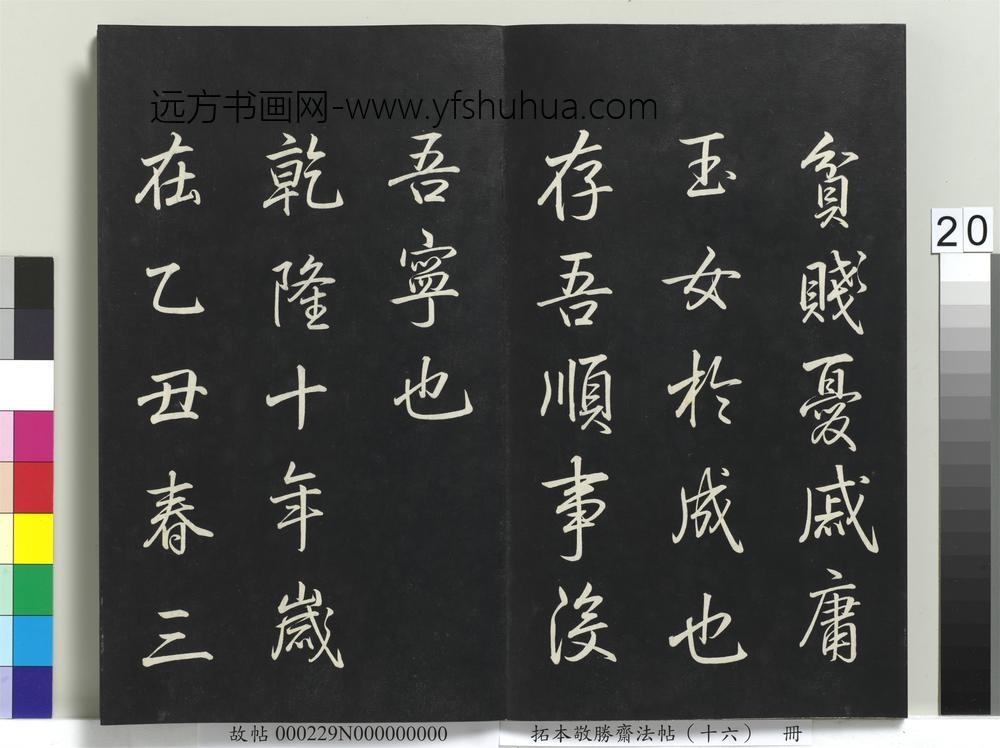 远方书画网-www.yfshuhua.com
貧賤憂戚庸
玉女於成也
存吾順事沒
吾寧也
乾隆十年歲
在乙丑春三
20
故帖 000229N000000000
拓本敬勝齋法帖（十六） 冊